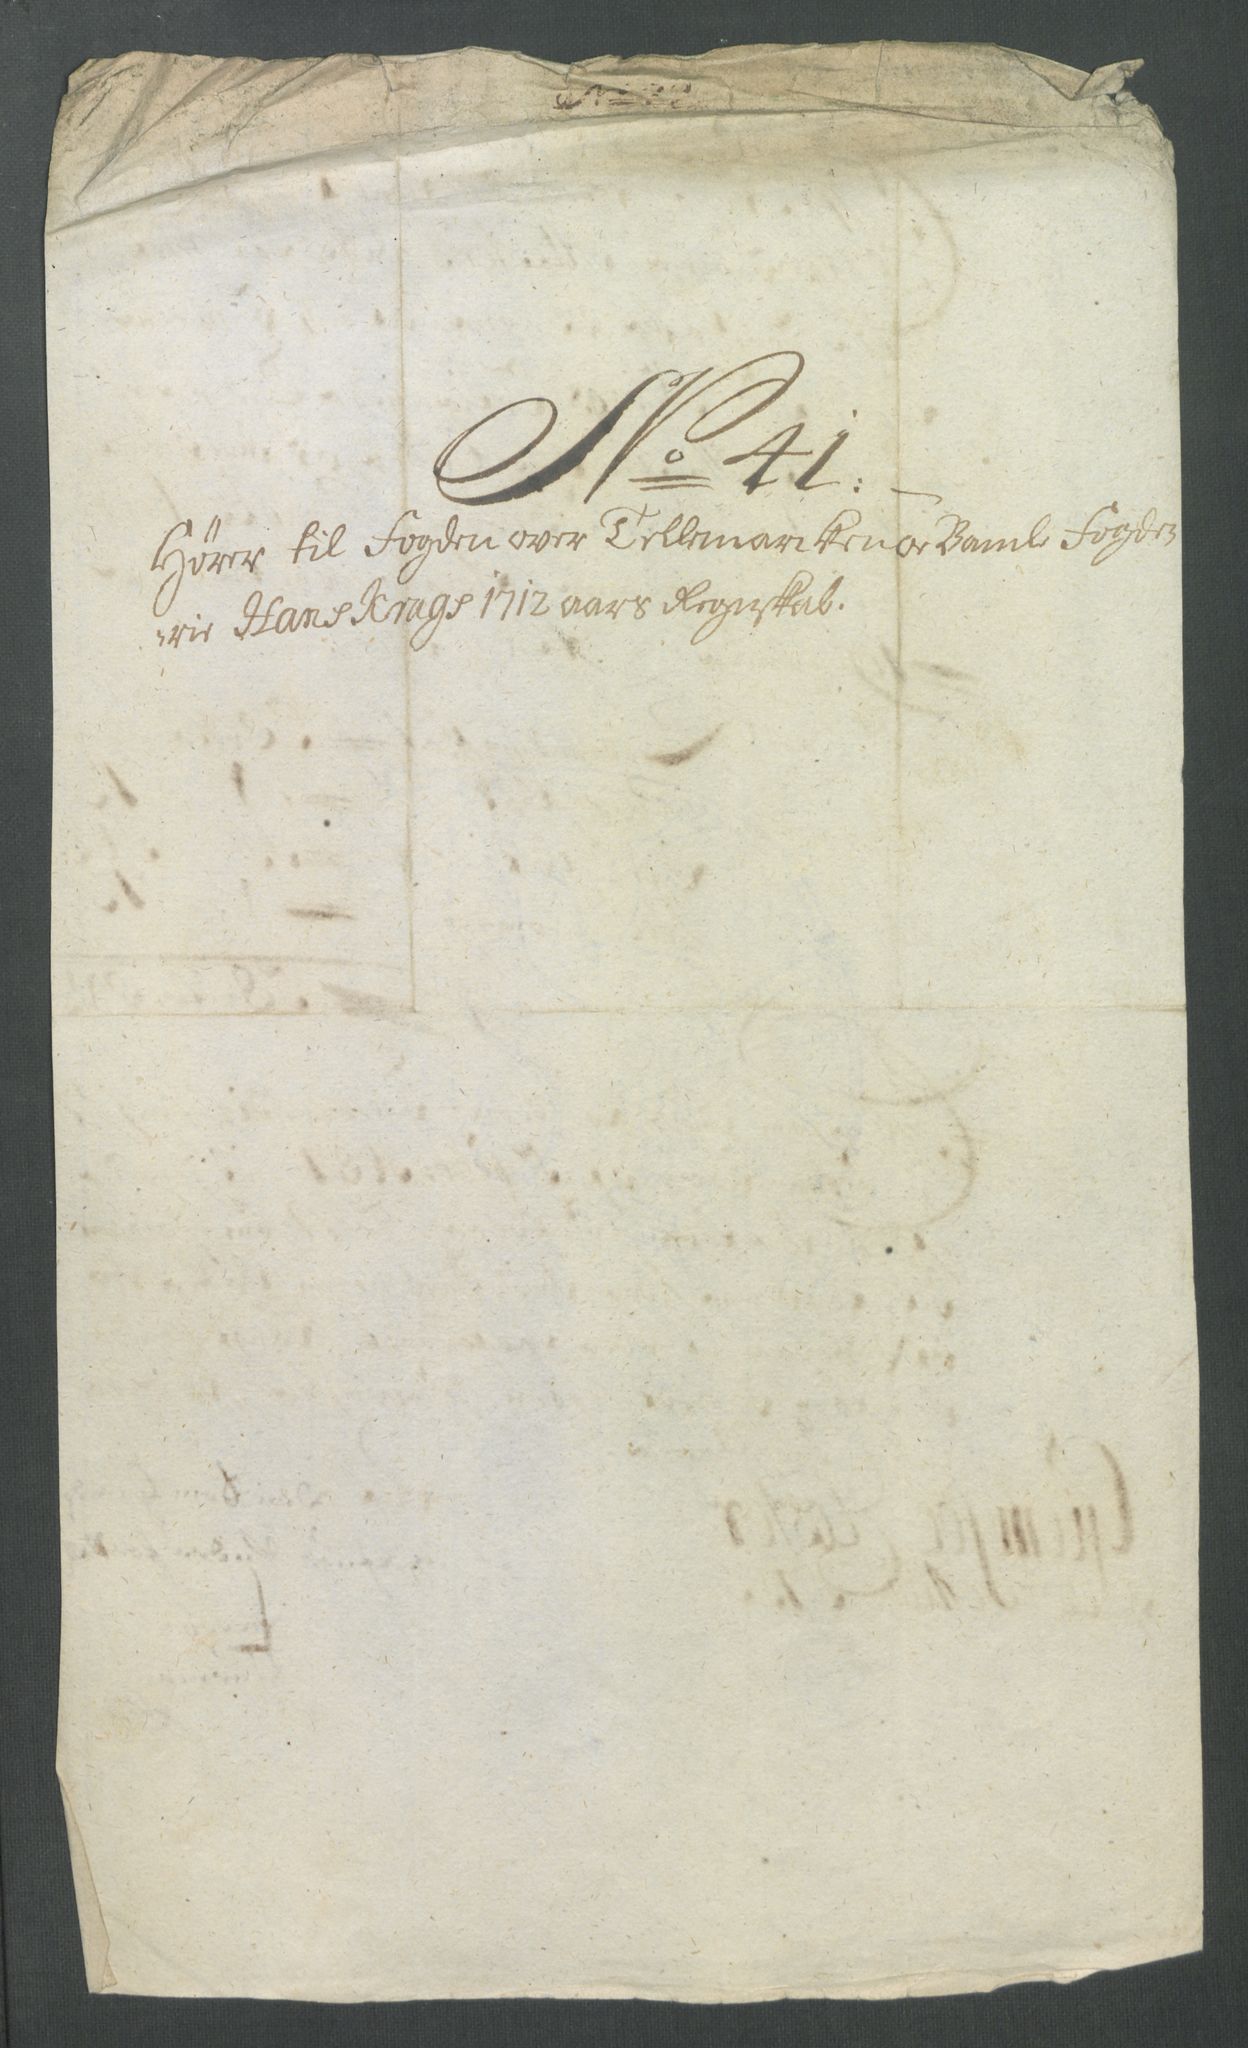 No 41.
Hører til Fogden over Tellemarcken oc Bamle Fogde
rie Hans Krags 1712 aars Regnskab.